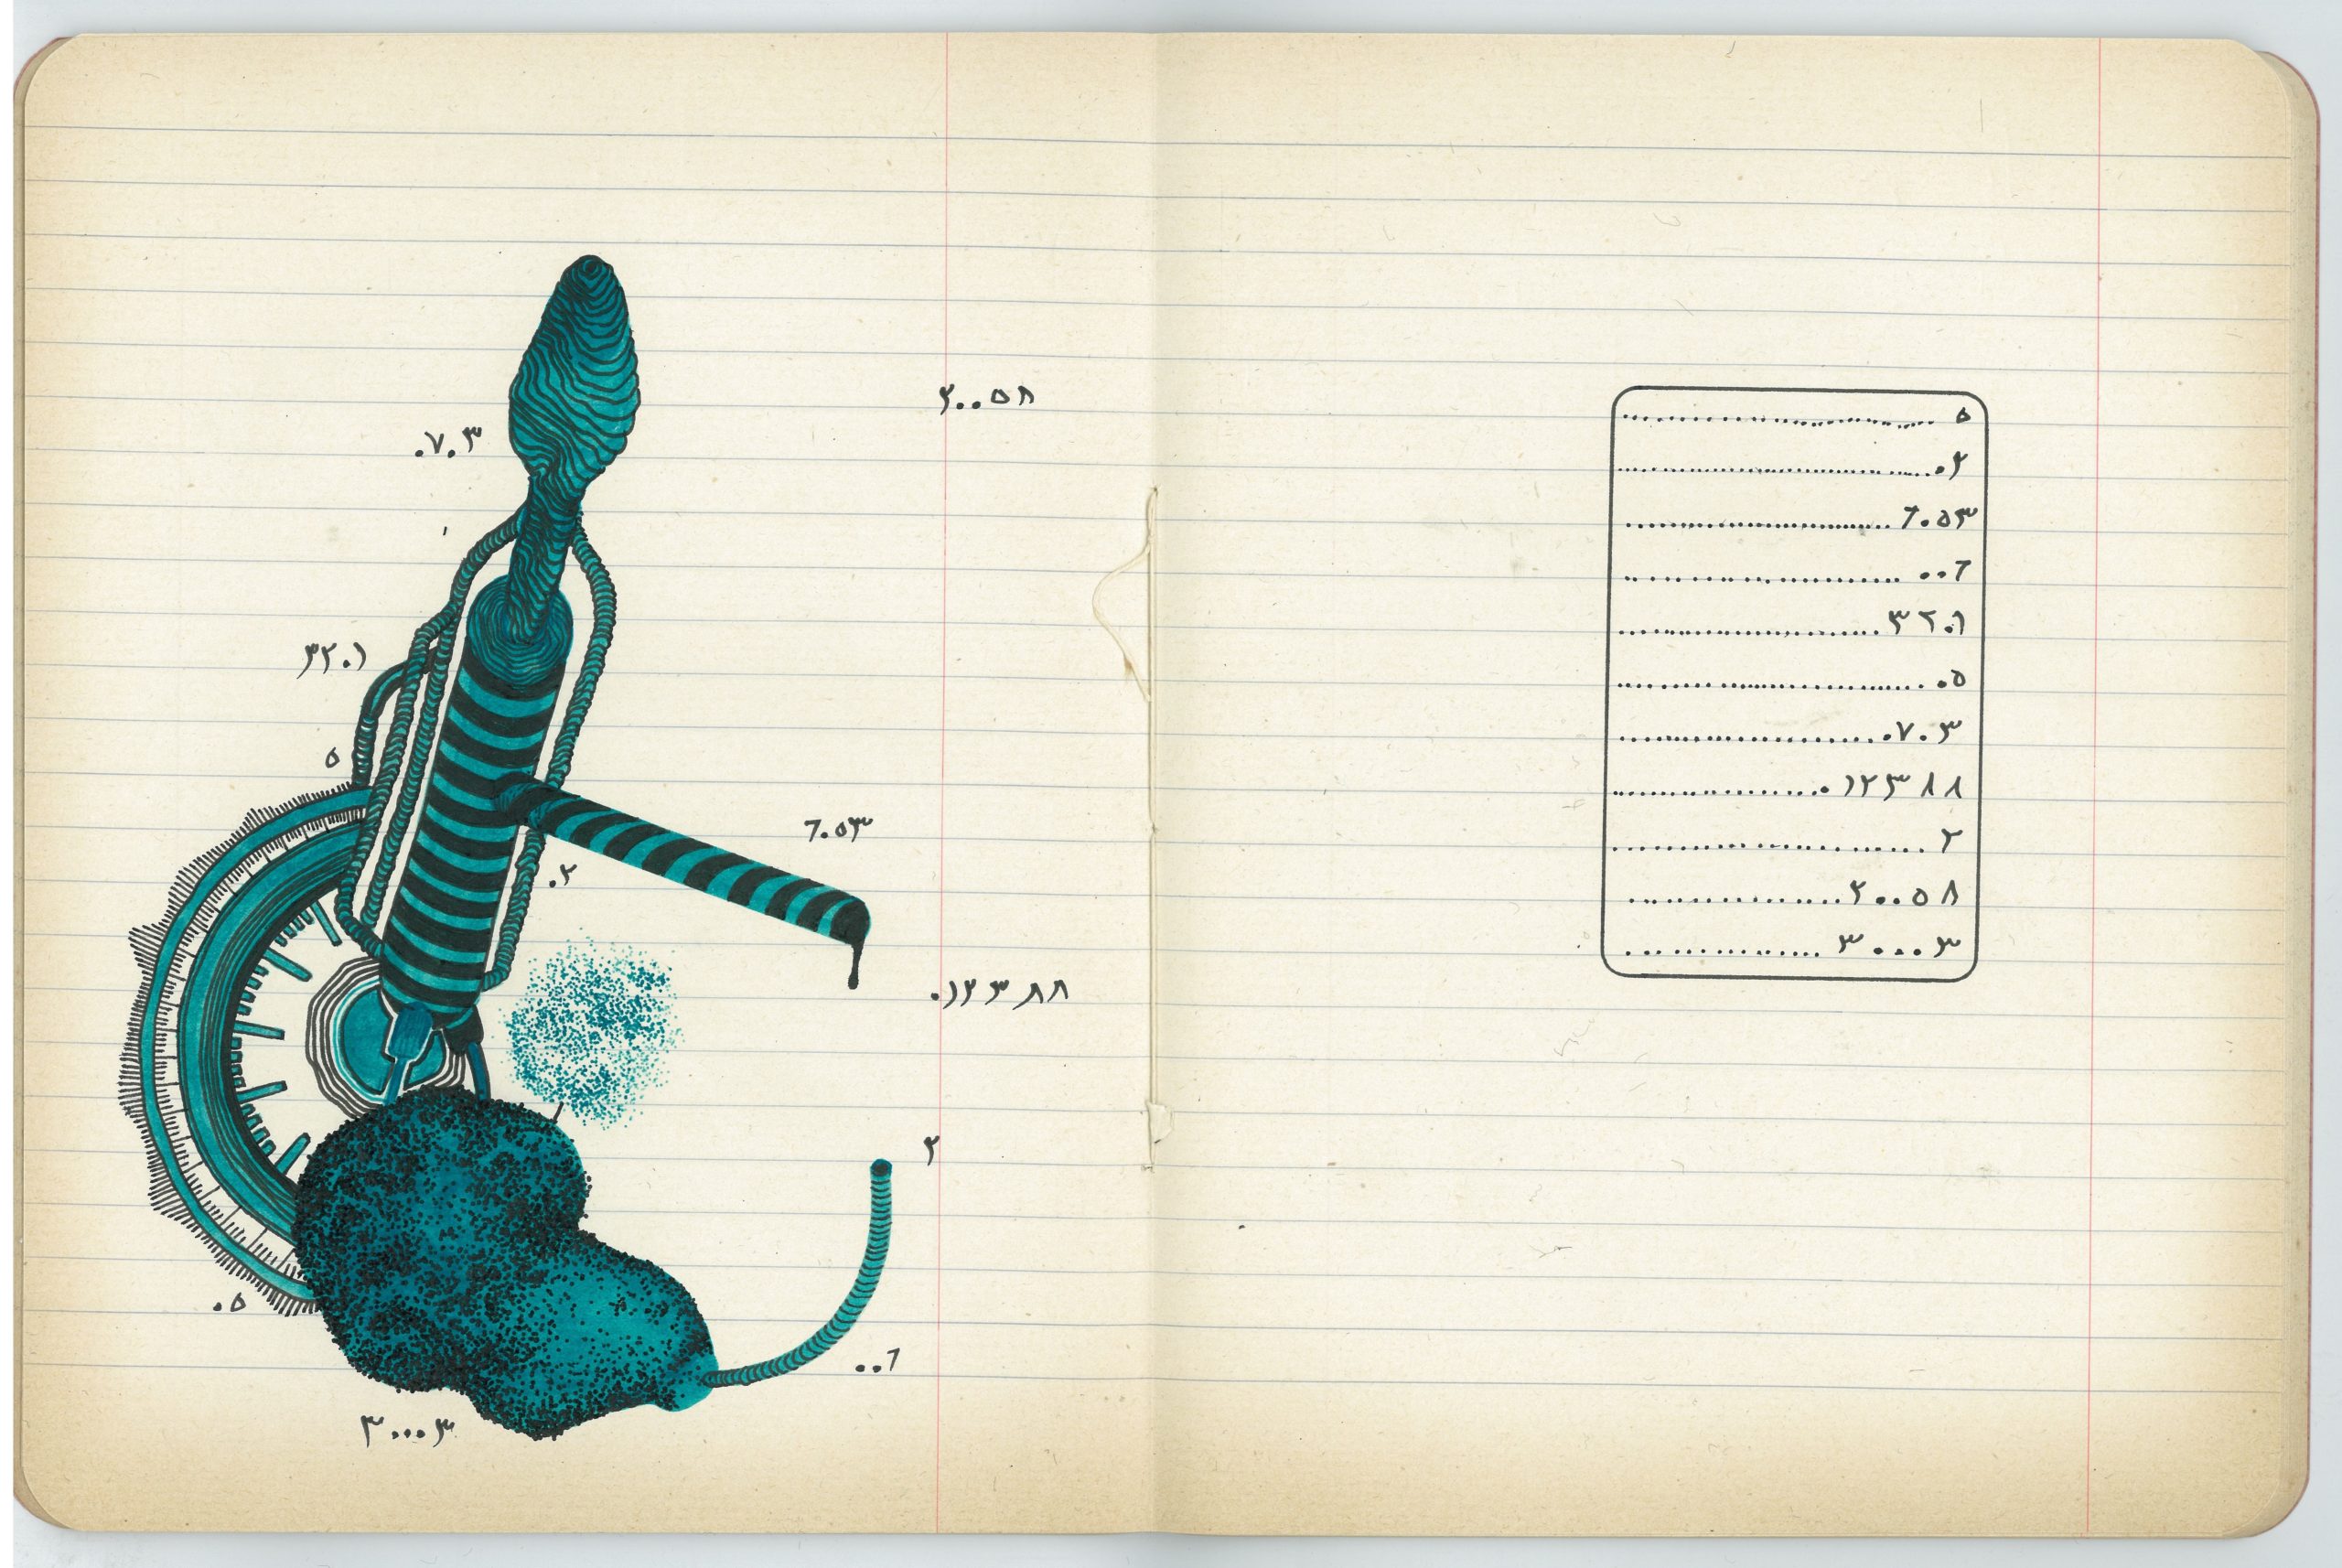 ٢٠٠٥٨
٠٧٠٣
٣٢٠١
٥
٦٠٥٣
٠٢
٠١٢٣٨٨
٢
٠٥
٠٠٦
٣٠٠٠٣
٥
٠٢
٦٠٥٣
٠٠٦
٣٢٠١
٠٥
٠٧٠٣
٠١٢٣٨٨
٢
٢٠٠٥٨
٣٠٠٠٣